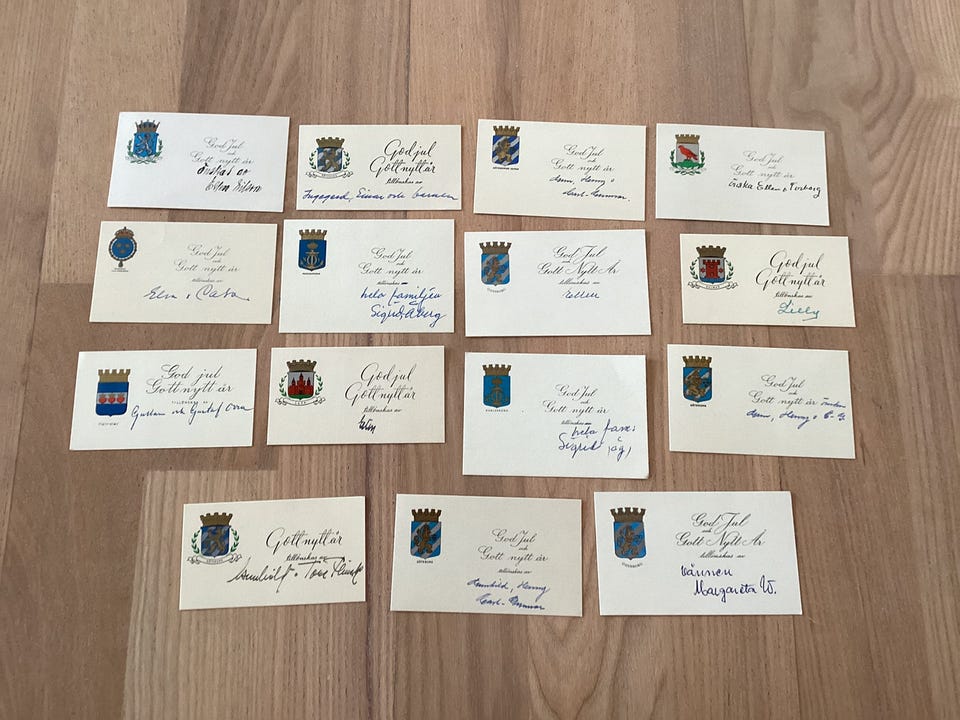 God Jul
och
Gott nytt år
önskas av
God jul
Gott nytt år
tillönskas av
Ingegerd, Einar och barnen
God Jul
och
Gott nytt år
tillönskas av
Henny o
Carl-Gunnar.
God Jul
och
Gott nytt år
önska Ellen o
God Jul
och
Gott nytt år
tillönskas av
Elsa o
God Jul
och
Gott nytt år
tillönskas av
hela familjen
Sigrid Åberg
God Jul
och
Gott Nytt År
tillönskas av
God jul
Gott nytt år
tillönskas av
Lilly
God jul
och
Gott nytt år
TILLÖNSKAS AV
Gustav och Gustaf
God jul
Gott nytt år
tillönskas av
KARLSKRONA
God Jul
och
Gott nytt år
tillönskas av
hela fam:
Sigrid
GÖTEBORG
God Jul
och
Gott nytt år
Henny o C-G.
Gott nytt år
tillönskas av
GÖTEBORG
God Jul
och
Gott nytt år
tillönskas av
Henny
Carl-Gunnar
GÖTEBORG
God Jul
och
Gott Nytt År
tillönskas av
vännen
Margareta W.